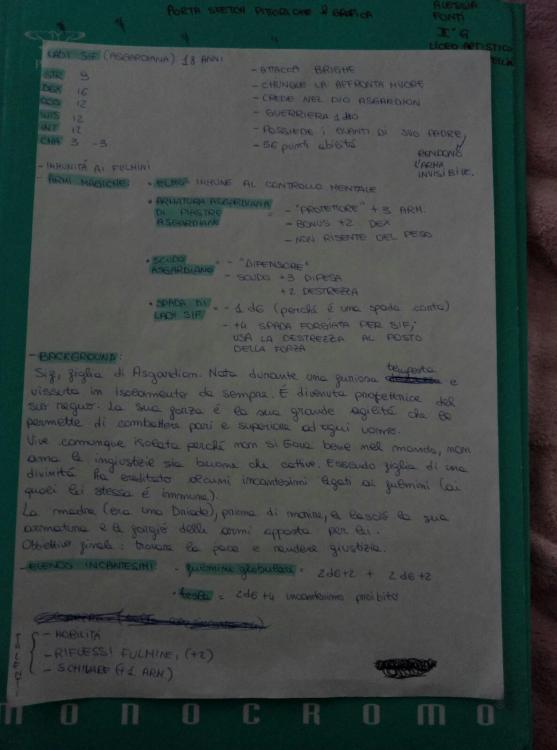 PORTA SKETCH PITTORICHE & GRAFICA
ALESSIA
PONTI
II°G
LICEO ARTISTICO
LADI SIF (ASGARDIANA) 18 ANNI
STR 9
DEX 16
COS 12
WIS 12
INT 12
CHA 3 -3
- ATTACCA BRIGHE
- CHIUNQUE LA AFFRONTA MUORE
- CREDE NEL DIO ASGARDION
- GUERRIERA
- POSSIEDE i GUANTI DI SUO PADRE,
RENDONO
L'ARMA
INVISIBILE.
- 56 punti abilità
- IMMUNITÀ AI FULMINI
- ARMI MAGICHE
• ELMO = IMMUNE AL CONTROLLO MENTALE
• ARMATURA ASGARDIANA
DI PIASTRE
ASGARDIANE
=
- "PROTETTORE" +3 ARM.
- BONUS +2 DEX
- NON RISENTE DEL PESO
• SCUDO
ASGARDIANO
=
- "DIFENSORE"
- SCUDO +3 DIFESA
+2 DESTREZZA
• SPADA DI
LADI SIF
=
- 1d6 (perché é una spada corta)
- +4 SPADA FORGIATA PER SIF,
USA LA DESTREZZA AL POSTO
DELLA FORZA
- BACKGROUND:
Sif, figlia di Asgardion. Nata durante una furiosa tempesta e
vissuta in isolamento da sempre. É divenuta protettrice del
suo regno. La sua forza é la sua grande agilità che le
permette di combattere pari e superiore ad ogni uomo.
Vive comunque isolata perché non si trova bene nel mondo, non
ama le ingiustizie sia buone che cattive. Essendo figlia di una
divinità ha ereditato alcuni incantesimi legati ai fulmini (ai
quali lei stessa é immune).
La madre (era una Driade), prima di morire, le lasciò la sua
armatura e le forgiò delle armi apposta per lei.
Obiettivo finale: trovare la pace e rendere giustizia.
- ELENCO INCANTESIMI
• fulmine globulare = 2d6+2 + 2d6+2
= 2d6+4 incantesimo proibito
TALENTI
- MOBILITÀ
- RIFLESSI FULMINEI (+2)
- SCHIVARE (+1 ARM)
MONOCROMO